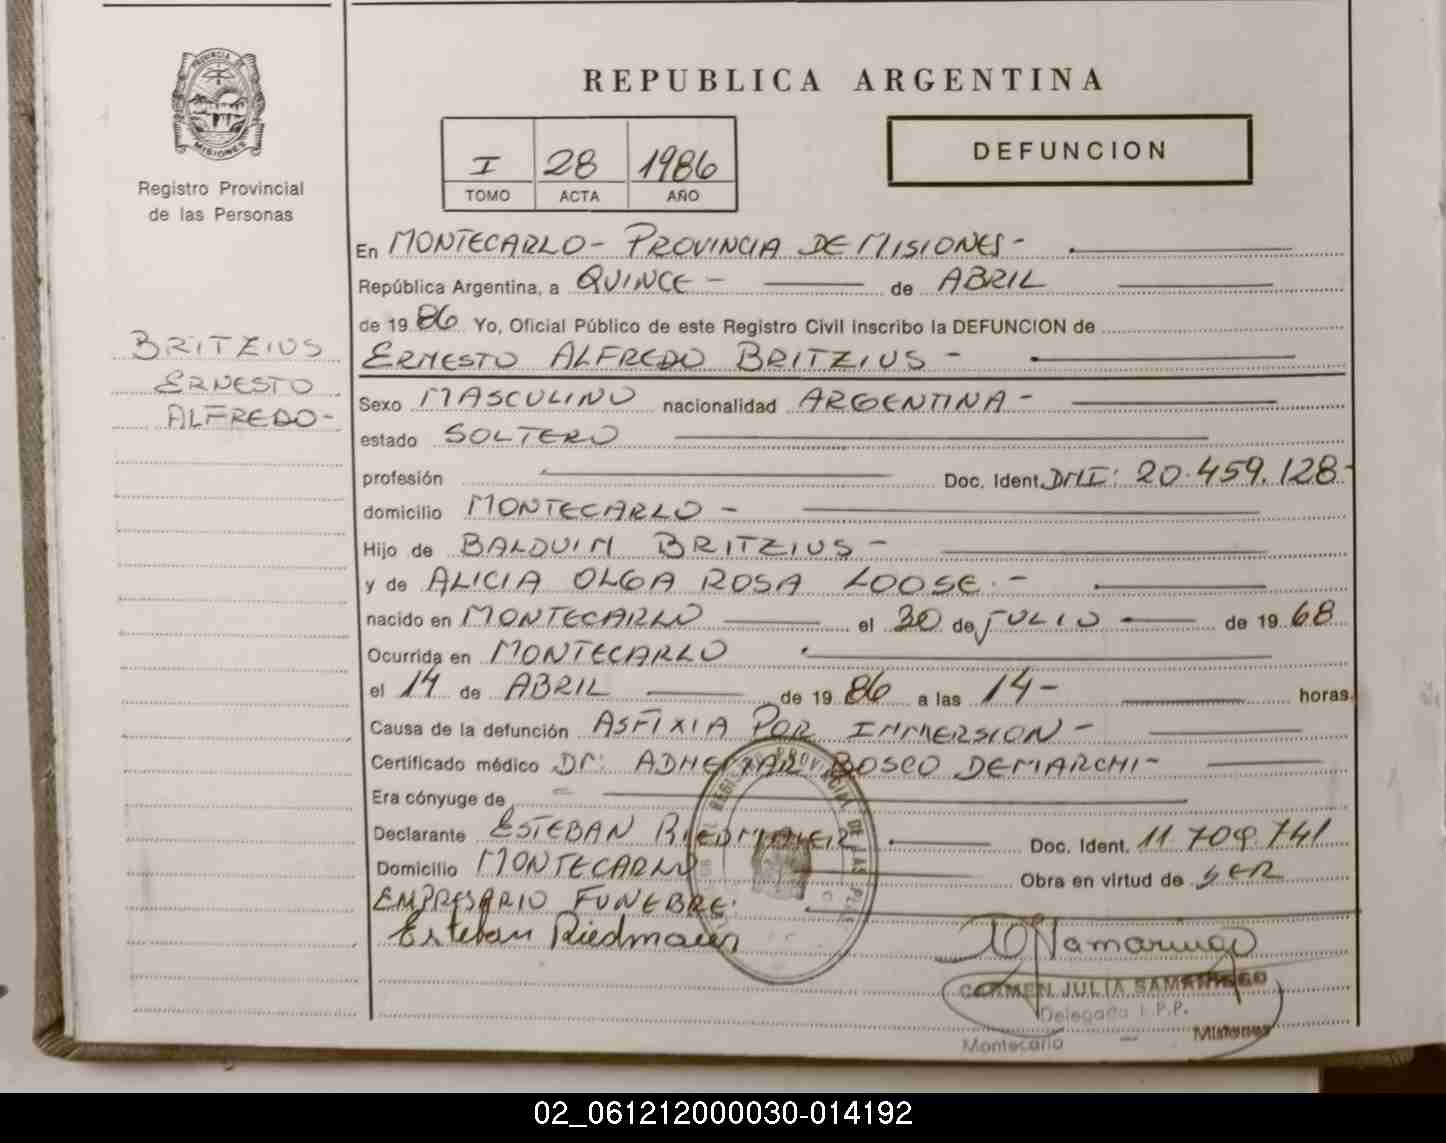 PROVINCIA DE
MISIONES
Registro Provincial
de las Personas
BRITZIUS
ERNESTO
ALFREDO-
REPUBLICA ARGENTINA
I 28 1986
TOMO ACTA AÑO
DEFUNCION
En MONTECARLO- PROVINCIA DE MISIONES-
República Argentina, a QUINCE- de ABRIL
de 1986 Yo, Oficial Público de este Registro Civil inscribo la DEFUNCION de
ERNESTO ALFREDO BRITZIUS-
Sexo MASCULINO nacionalidad ARGENTINA-
estado SOLTERO
profesión Doc. Ident. DNI: 20.459.128-
domicilio MONTECARLO-
Hijo de BALDUIN BRITZIUS-
y de ALICIA OLGA ROSA LOOSE.-
nacido en MONTECARLO el 30 de JULIO de 1968
Ocurrida en MONTECARLO
el 14 de ABRIL de 1986 a las 14- horas.
Causa de la defunción ASFIXIA POR INMERSION-
Certificado médico Dr: ADHEMAR BOSCO DEMARCHI-
Era cónyuge de
Declarante ESTEBAN RIEDMAIER Doc. Ident. 11.709.741
Domicilio MONTECARLO Obra en virtud de SER
EMPRESARIO FUNEBRE.
Esteban Riedmaier
CARMEN JULIA SAMANIEGO
Delegada R.P.P.
Montecarlo - Misiones
02_061212000030-014192